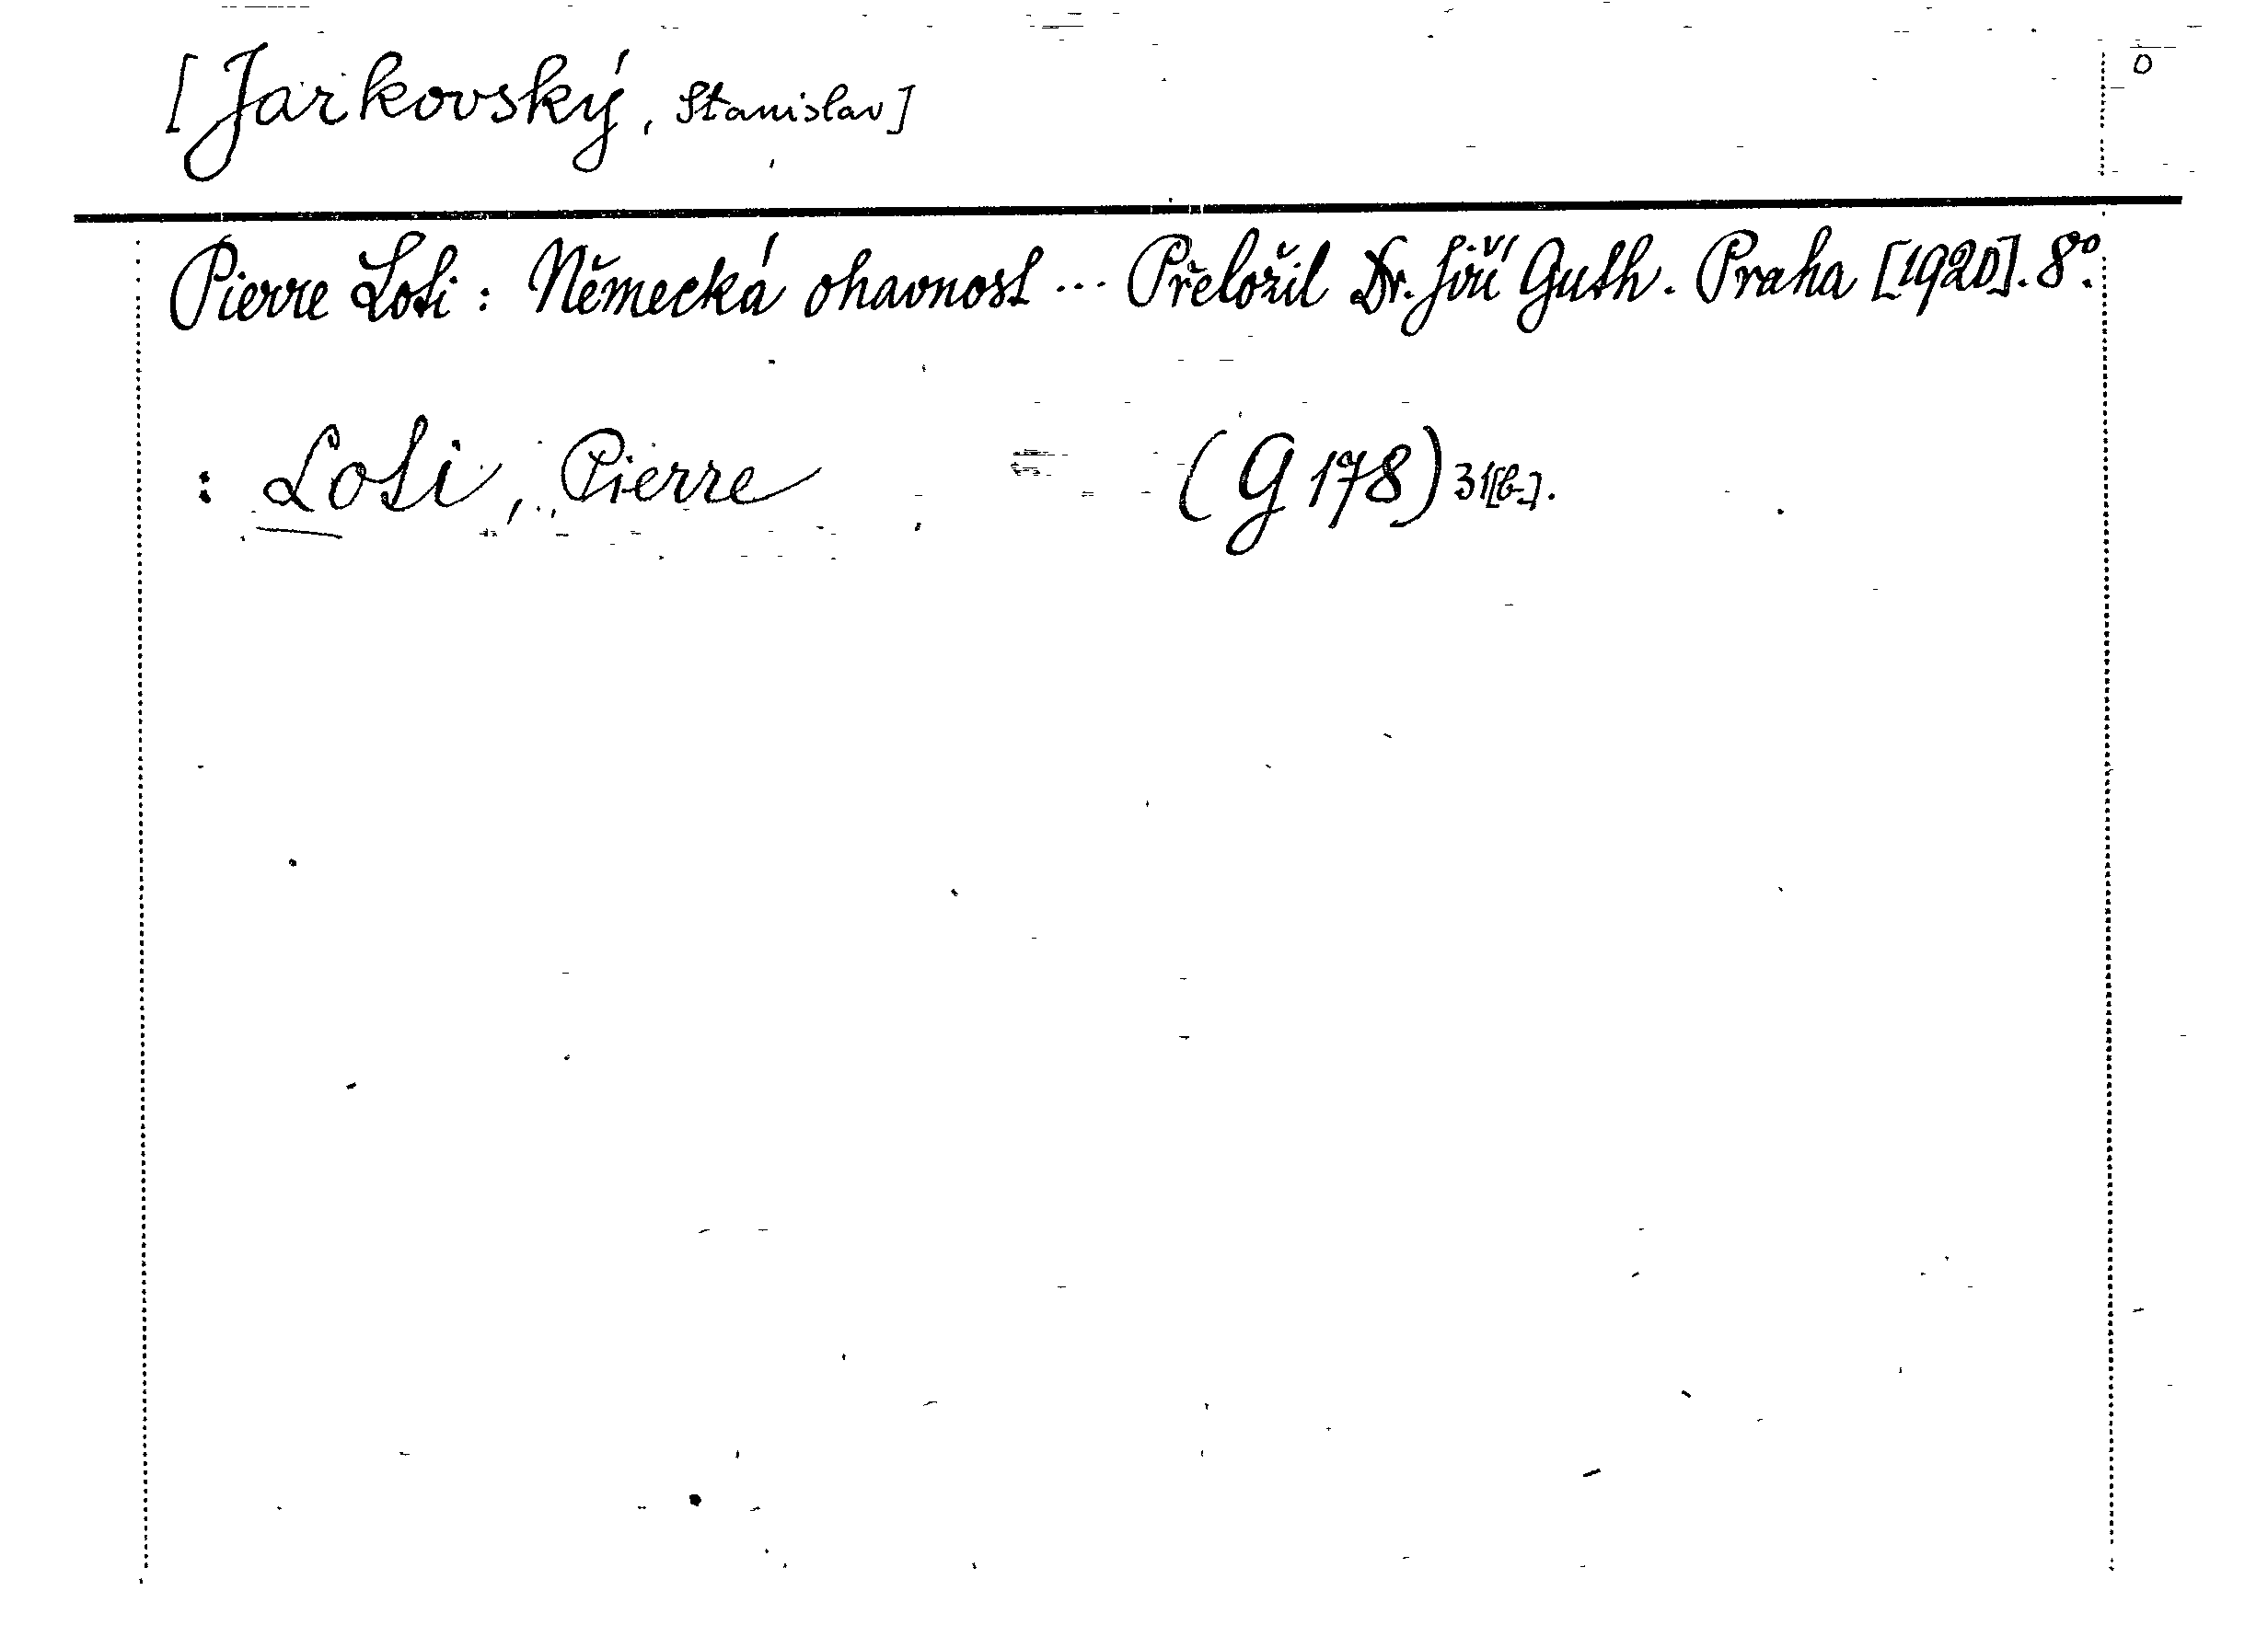 [Jarkovský, Stanislav]
Pierre Loti: Německá ohavnost ... Přeložil Dr. Jiří Guth. Praha [1920]. 8°.
: Loti, Pierre (G 178)